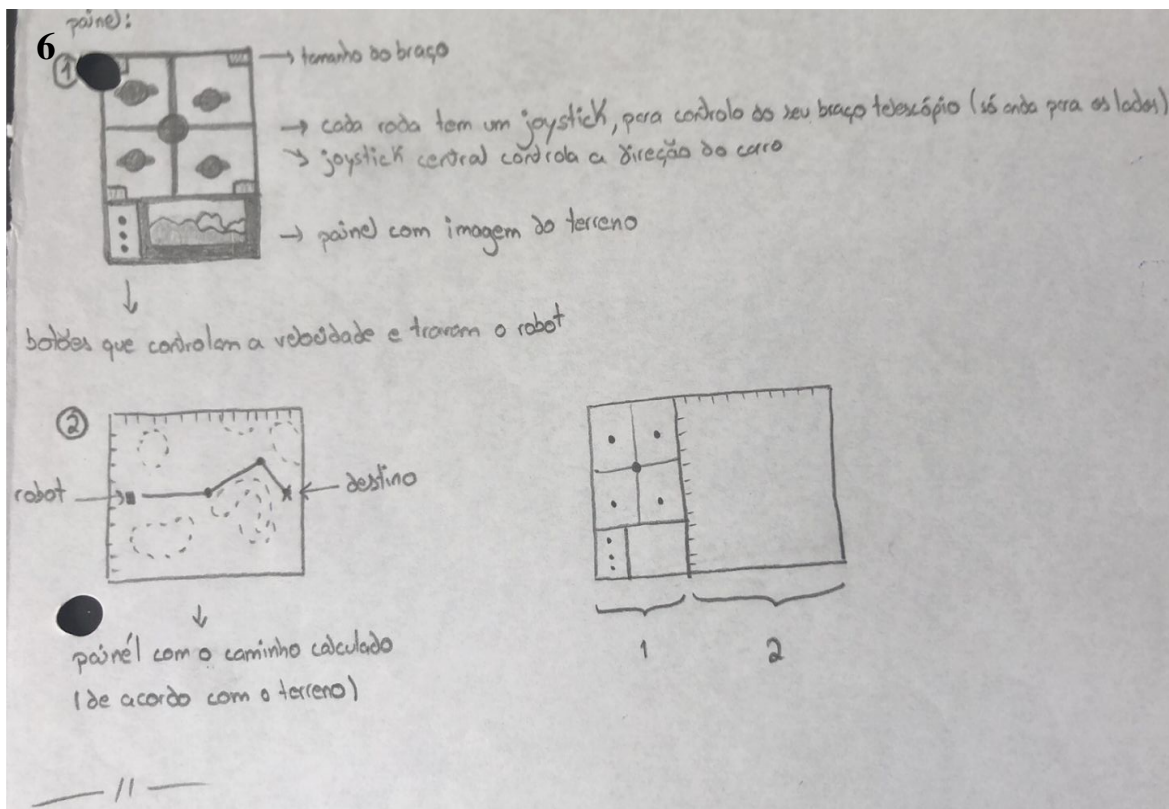 painel:
6
1
→ tamanho do braço
→ cada roda tem um joystick, para controlo do seu braço telescópio (só anda para os lados)
→ joystick central controla a direção do carro
→ painel com imagem do terreno
botões que controlam a velocidade e travam o robot
2
robot
destino
painél com o caminho calculado
(de acordo com o terreno)
1 2
— // —